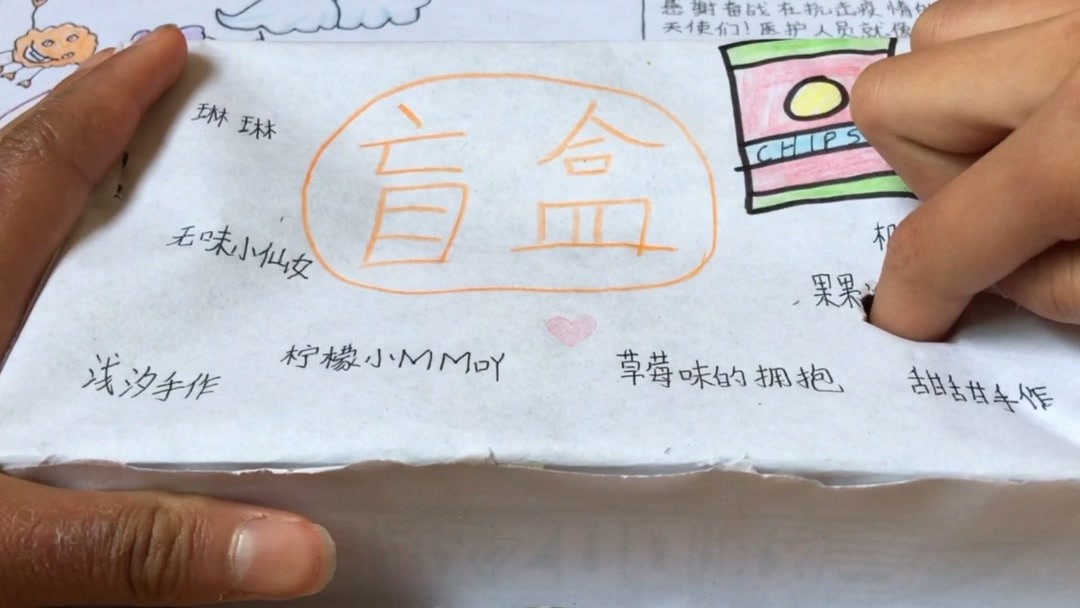 感谢奋战在抗击疫情的
天使们！医护人员就像
琳琳
盲盒
CHIPS
无味小仙女
机
果果
浅汐手作
柠檬小MM吖
草莓味的拥抱
甜甜手作